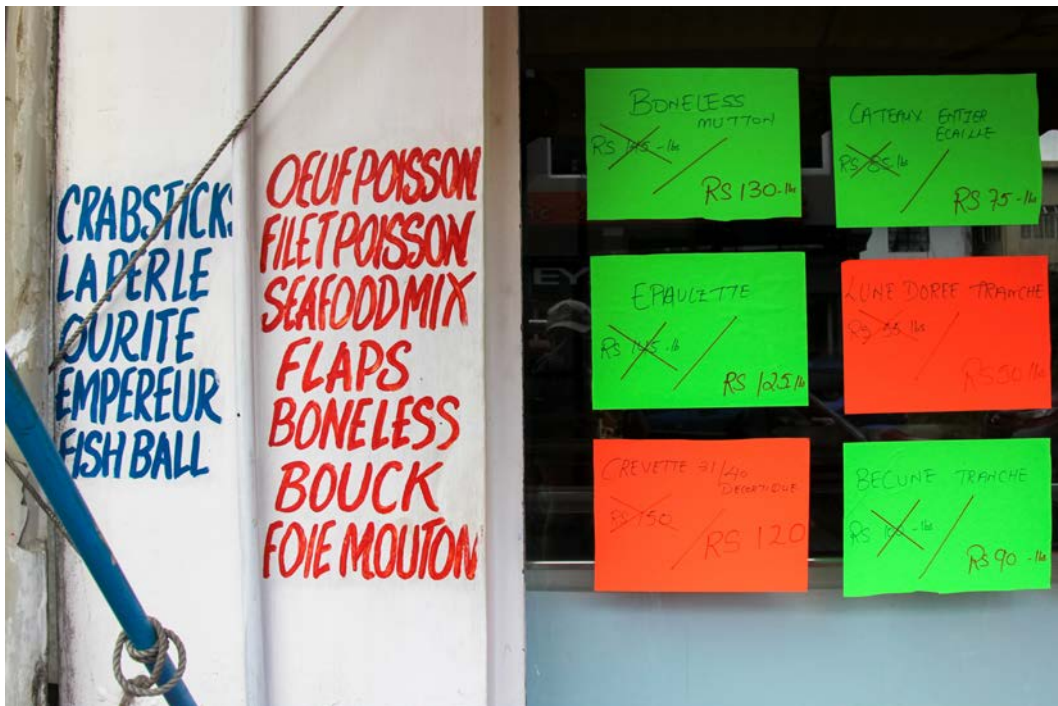 CRABSTICKS
LA PERLE
OURITE
EMPEREUR
FISH BALL
OEUF POISSON
FILET POISSON
SEAFOOD MIX
FLAPS
BONELESS
BOUCK
FOIE MOUTON
BONELESS
MUTTON
RS 145 -lbs
RS 130 -lbs
CATEAUX ENTIER
ECAILLE
RS 85 lbs
RS 75 -lbs
EPAULETTE
RS 145 -lb
RS 125 lb
LUNE DOREE TRANCHE
RS 55 lbs
RS 50 lb
CREVETTE 31/40
DECORTIQUE
RS 150
RS 120
BECUNE TRANCHE
RS lbs
RS 90 -lbs
EY